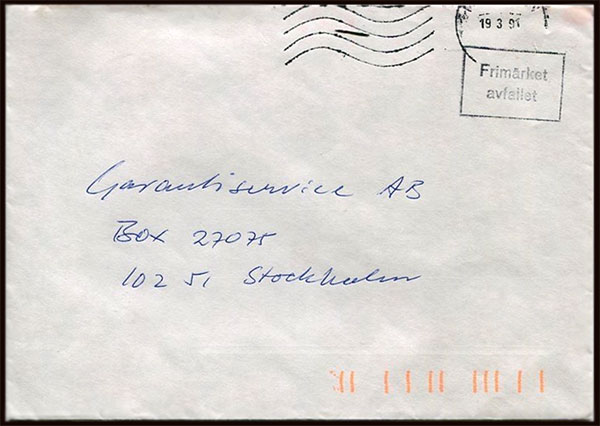 19 3 91
Frimärket
avfallet
Garantiservice AB
Box 27075
102 51 Stockholm